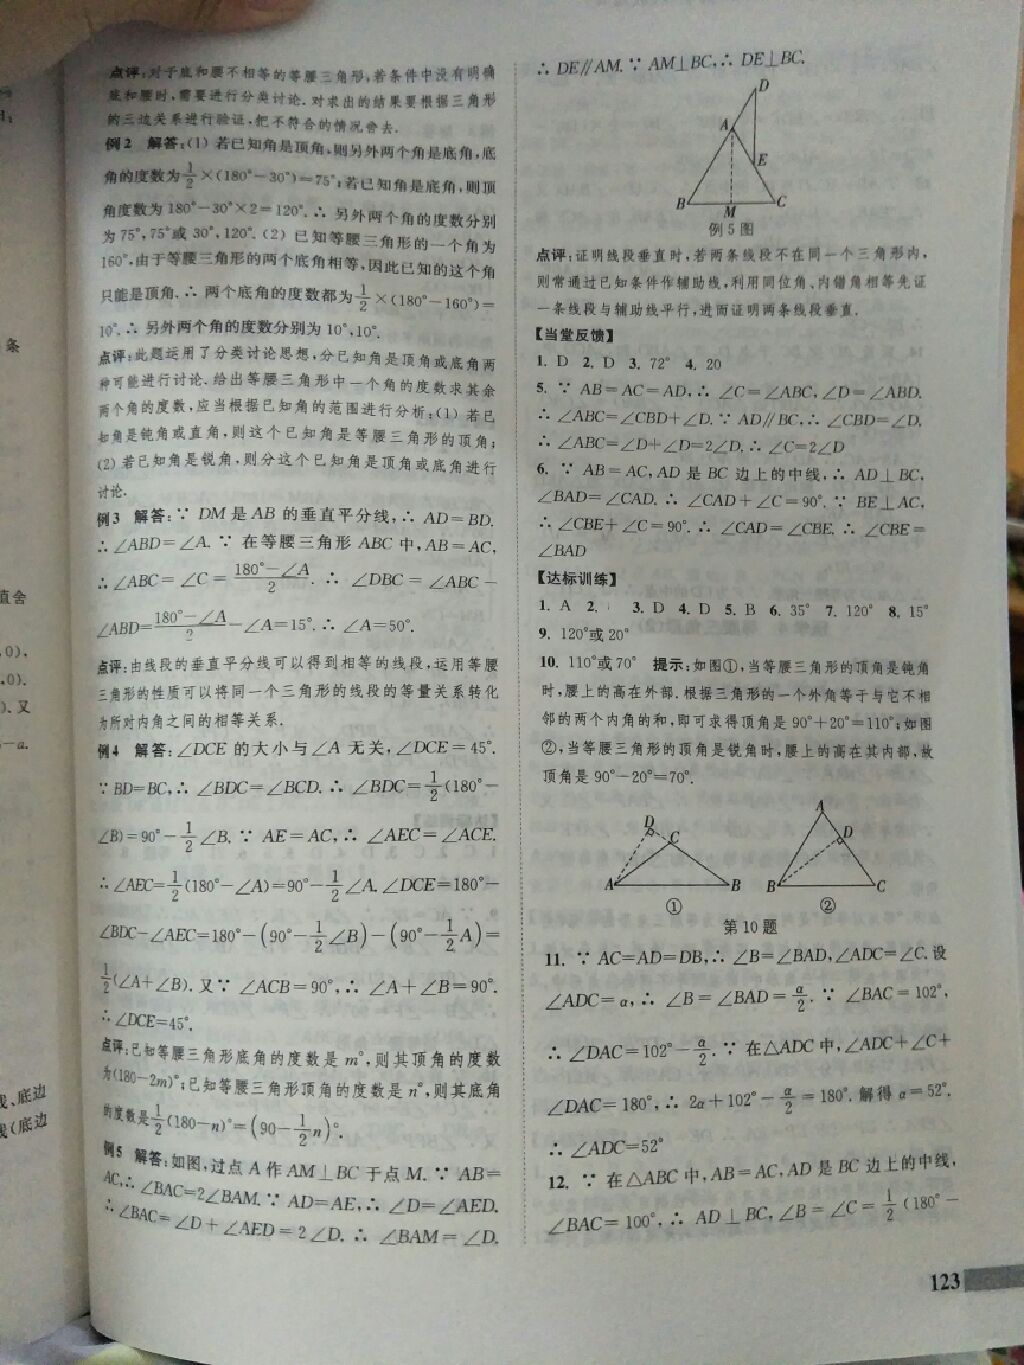 点评:对于底和腰不相等的等腰三角形,若条件中没有明确
底和腰时,需要进行分类讨论.对求出的结果要根据三角形
的三边关系进行验证,把不符合的情况舍去.
例2 解答:(1) 若已知角是顶角,则另外两个角是底角,底
角的度数为1/2×(180°-30°)=75°;若已知角是底角,则顶
角度数为 180°-30°×2=120°.∴ 另外两个角的度数分别
为 75°,75°或 30°,120°. (2) 已知等腰三角形的一个角为
160°,由于等腰三角形的两个底角相等,因此已知的这个角
只能是顶角.∴ 两个底角的度数都为1/2×(180°-160°)=
10°.∴ 另外两个角的度数分别为 10°,10°.
点评:此题运用了分类讨论思想,分已知角是顶角或底角两
种可能进行讨论.给出等腰三角形中一个角的度数求其余
两个角的度数,应当根据已知角的范围进行分析:(1) 若已
知角是钝角或直角,则这个已知角是等腰三角形的顶角;
(2) 若已知角是锐角,则分这个已知角是顶角或底角进行
讨论.
例3 解答:∵ DM 是 AB 的垂直平分线,∴ AD=BD.
∴ ∠ABD=∠A. ∵ 在等腰三角形 ABC 中,AB=AC,
∴ ∠ABC=∠C=(180°-∠A)/2. ∴ ∠DBC=∠ABC-
∠ABD=(180°-∠A)/2-∠A=15°.∴ ∠A=50°.
点评:由线段的垂直平分线可以得到相等的线段,运用等腰
三角形的性质可以将同一个三角形的线段的等量关系转化
为所对内角之间的相等关系.
例4 解答:∠DCE 的大小与∠A 无关,∠DCE=45°.
∵ BD=BC,∴ ∠BDC=∠BCD. ∴ ∠BDC=1/2(180°-
∠B)=90°-1/2∠B. ∵ AE=AC,∴ ∠AEC=∠ACE.
∴ ∠AEC=1/2(180°-∠A)=90°-1/2∠A. ∠DCE=180°-
∠BDC-∠AEC=180°-(90°-1/2∠B)-(90°-1/2A)=
1/2(∠A+∠B). 又∵ ∠ACB=90°,∴ ∠A+∠B=90°.
∴ ∠DCE=45°.
点评:已知等腰三角形底角的度数是 m°,则其顶角的度数
为(180-2m)°;已知等腰三角形顶角的度数是 n°,则其底角
的度数是1/2(180-n)°=(90-1/2n)°.
例5 解答:如图,过点 A 作 AM⊥BC 于点 M. ∵ AB=
AC,∴ ∠BAC=2∠BAM. ∵ AD=AE,∴ ∠D=∠AED.
∴ ∠BAC=∠D+∠AED=2∠D. ∴ ∠BAM=∠D.
∴ DE∥AM. ∵ AM⊥BC,∴ DE⊥BC.
D
A
E
B M C
例5图
点评:证明线段垂直时,若两条线段不在同一个三角形内,
则常通过已知条件作辅助线,利用同位角、内错角相等先证
一条线段与辅助线平行,进而证明两条线段垂直.
【当堂反馈】
1. D 2. D 3. 72° 4. 20
5. ∵ AB=AC=AD,∴ ∠C=∠ABC,∠D=∠ABD.
∴ ∠ABC=∠CBD+∠D. ∵ AD∥BC,∴ ∠CBD=∠D,
∴ ∠ABC=∠D+∠D=2∠D. ∴ ∠C=2∠D
6. ∵ AB=AC,AD 是 BC 边上的中线,∴ AD⊥BC,
∠BAD=∠CAD. ∴ ∠CAD+∠C=90°. ∵ BE⊥AC,
∴ ∠CBE+∠C=90°. ∴ ∠CAD=∠CBE. ∴ ∠CBE=
∠BAD
【达标训练】
1. A 2. 3. D 4. D 5. B 6. 35° 7. 120° 8. 15°
9. 120°或 20°
10. 110°或70° 提示:如图①,当等腰三角形的顶角是钝角
时,腰上的高在外部.根据三角形的一个外角等于与它不相
邻的两个内角的和,即可求得顶角是 90°+20°=110°;如图
②,当等腰三角形的顶角是锐角时,腰上的高在其内部,故
顶角是 90°-20°=70°.
D C
A B
①
A
D
B C
②
第10题
11. ∵ AC=AD=DB,∴ ∠B=∠BAD,∠ADC=∠C. 设
∠ADC=α,∴ ∠B=∠BAD=α/2. ∵ ∠BAC=102°,
∴ ∠DAC=102°-α/2. ∵ 在△ADC 中,∠ADC+∠C+
∠DAC=180°,∴ 2α+102°-α/2=180°. 解得 α=52°.
∴ ∠ADC=52°
12. ∵ 在△ABC 中,AB=AC,AD 是 BC 边上的中线,
∠BAC=100°,∴ AD⊥BC,∠B=∠C=1/2(180°-
123
条
直舍
,0),
,0).
). 又
-a.
线、底边
线(底边